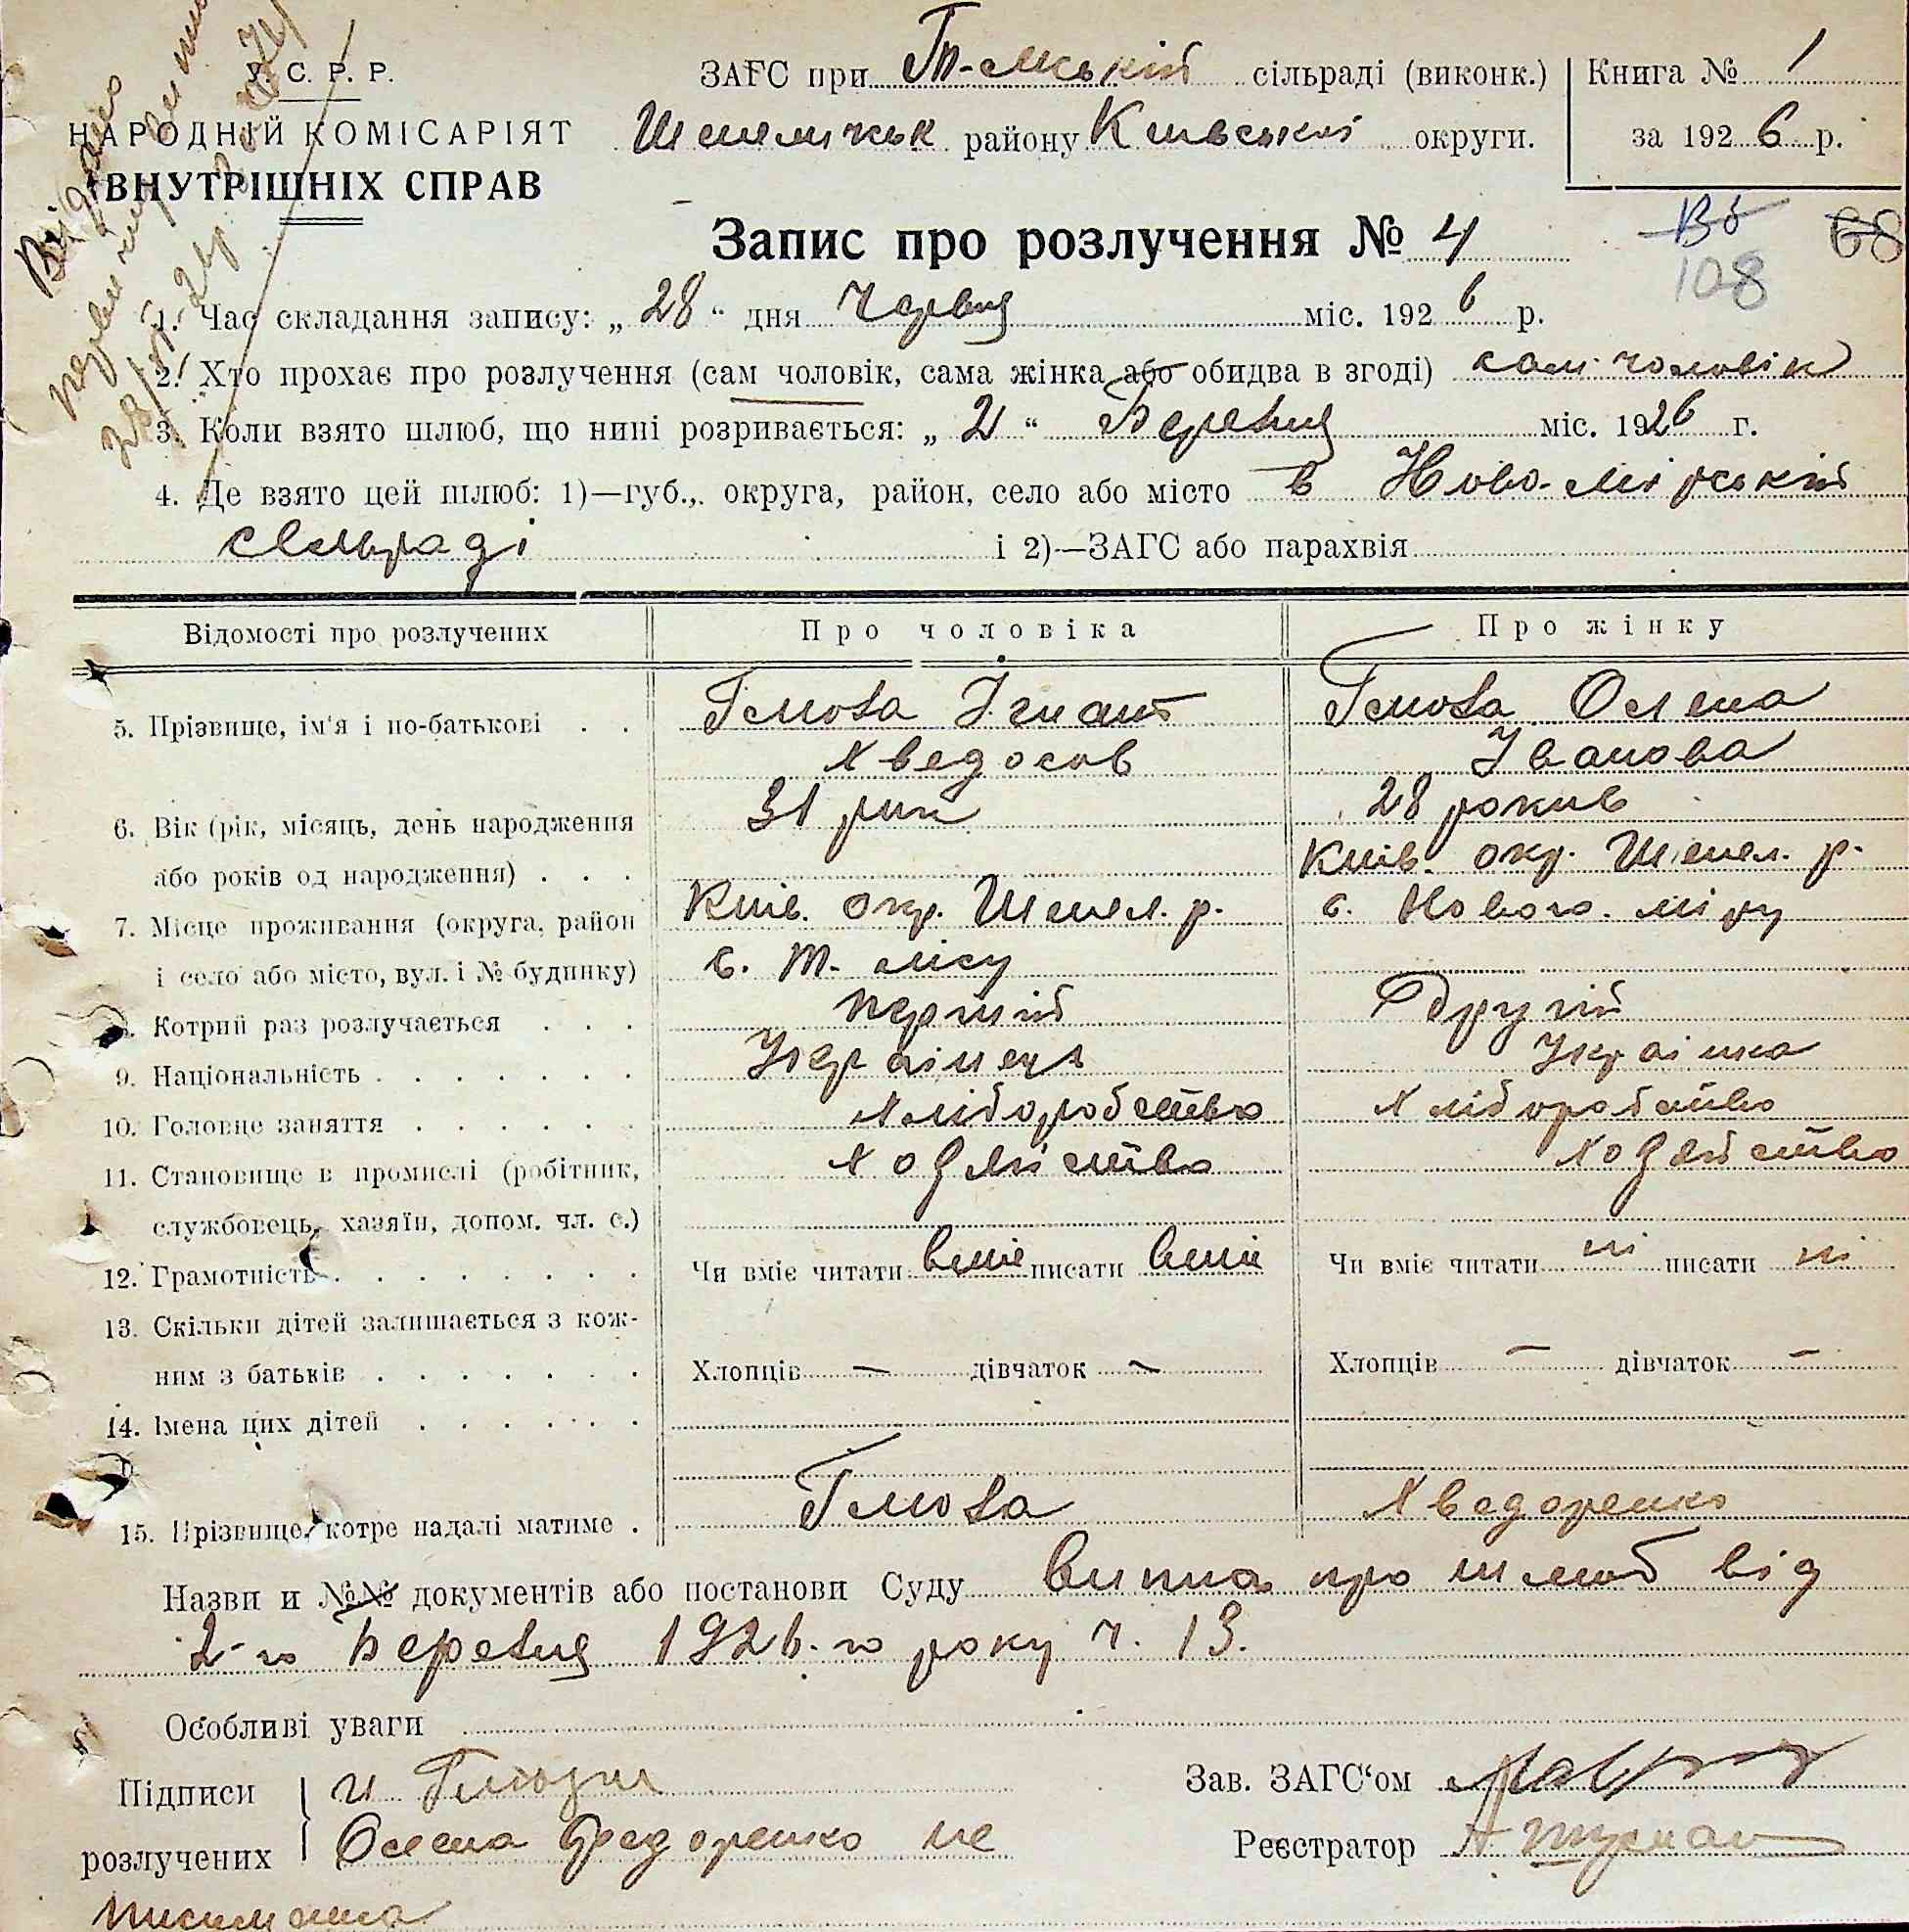 У. С. Р. Р.
НАРОДНІЙ КОМІСАРІЯТ
ВНУТРІШНІХ СПРАВ
Видано
ЗАГС при Т-лиській сільраді (виконк.)
Шепелицьк району Київської округи.
Книга № 1
за 1926 р.
Запис про розлучення № 4
108
68
1. Час складання запису: „28“ дня Червця міс. 1926 р.
2. Хто прохає про розлучення (сам чоловік, сама жінка або обидва в згоді) сам чоловік
3. Коли взято шлюб, що нині розривається: „2“ Березця міс. 1926 г.
4. Де взято цей шлюб: 1)—губ., округа, район, село або місто в Ново-Мірській
сільраді і 2)—ЗАГС або парахвія
Відомості про розлучених Про чоловіка Про жінку
5. Прізвище, ім'я і по-батькові Гмоза Ігнат Гмоза Олена
Хведосов Іванова
6. Вік (рік, місяць, день народження 31 рик 28 рокив
або років од народження) Київ. окр. Шепел. р.
7. Місце проживання (округа, район Київ. окр. Шепел. р. с. Нового-міру
і село або місто, вул. і № будинку) с. Т-лісу
8. Котрий раз розлучається перший другій
9. Національність Українець Українка
10. Головне заняття Хліборобство Хліборобство
11. Становище в промислі (робітник,
службовець, хазяїн, допом. чл. с.)
12. Грамотність Чи вміє читати вміє писати вміє Чи вміє читати ні писати ні
13. Скільки дітей залишається з кож-
ним з батьків Хлопців — дівчаток — Хлопців — дівчаток —
14. Імена цих дітей
15. Прізвище, котре надалі матиме Гмоза Хведоренко
Назви и №№ документів або постанови Суду випис про шлюб від
2-го Березця 1926-го року ч. 13.
Особливі уваги
Підписи И Гмоза
розлучених Олена Федоренко не
письмена
Зав. ЗАГС“ом
Реєстратор